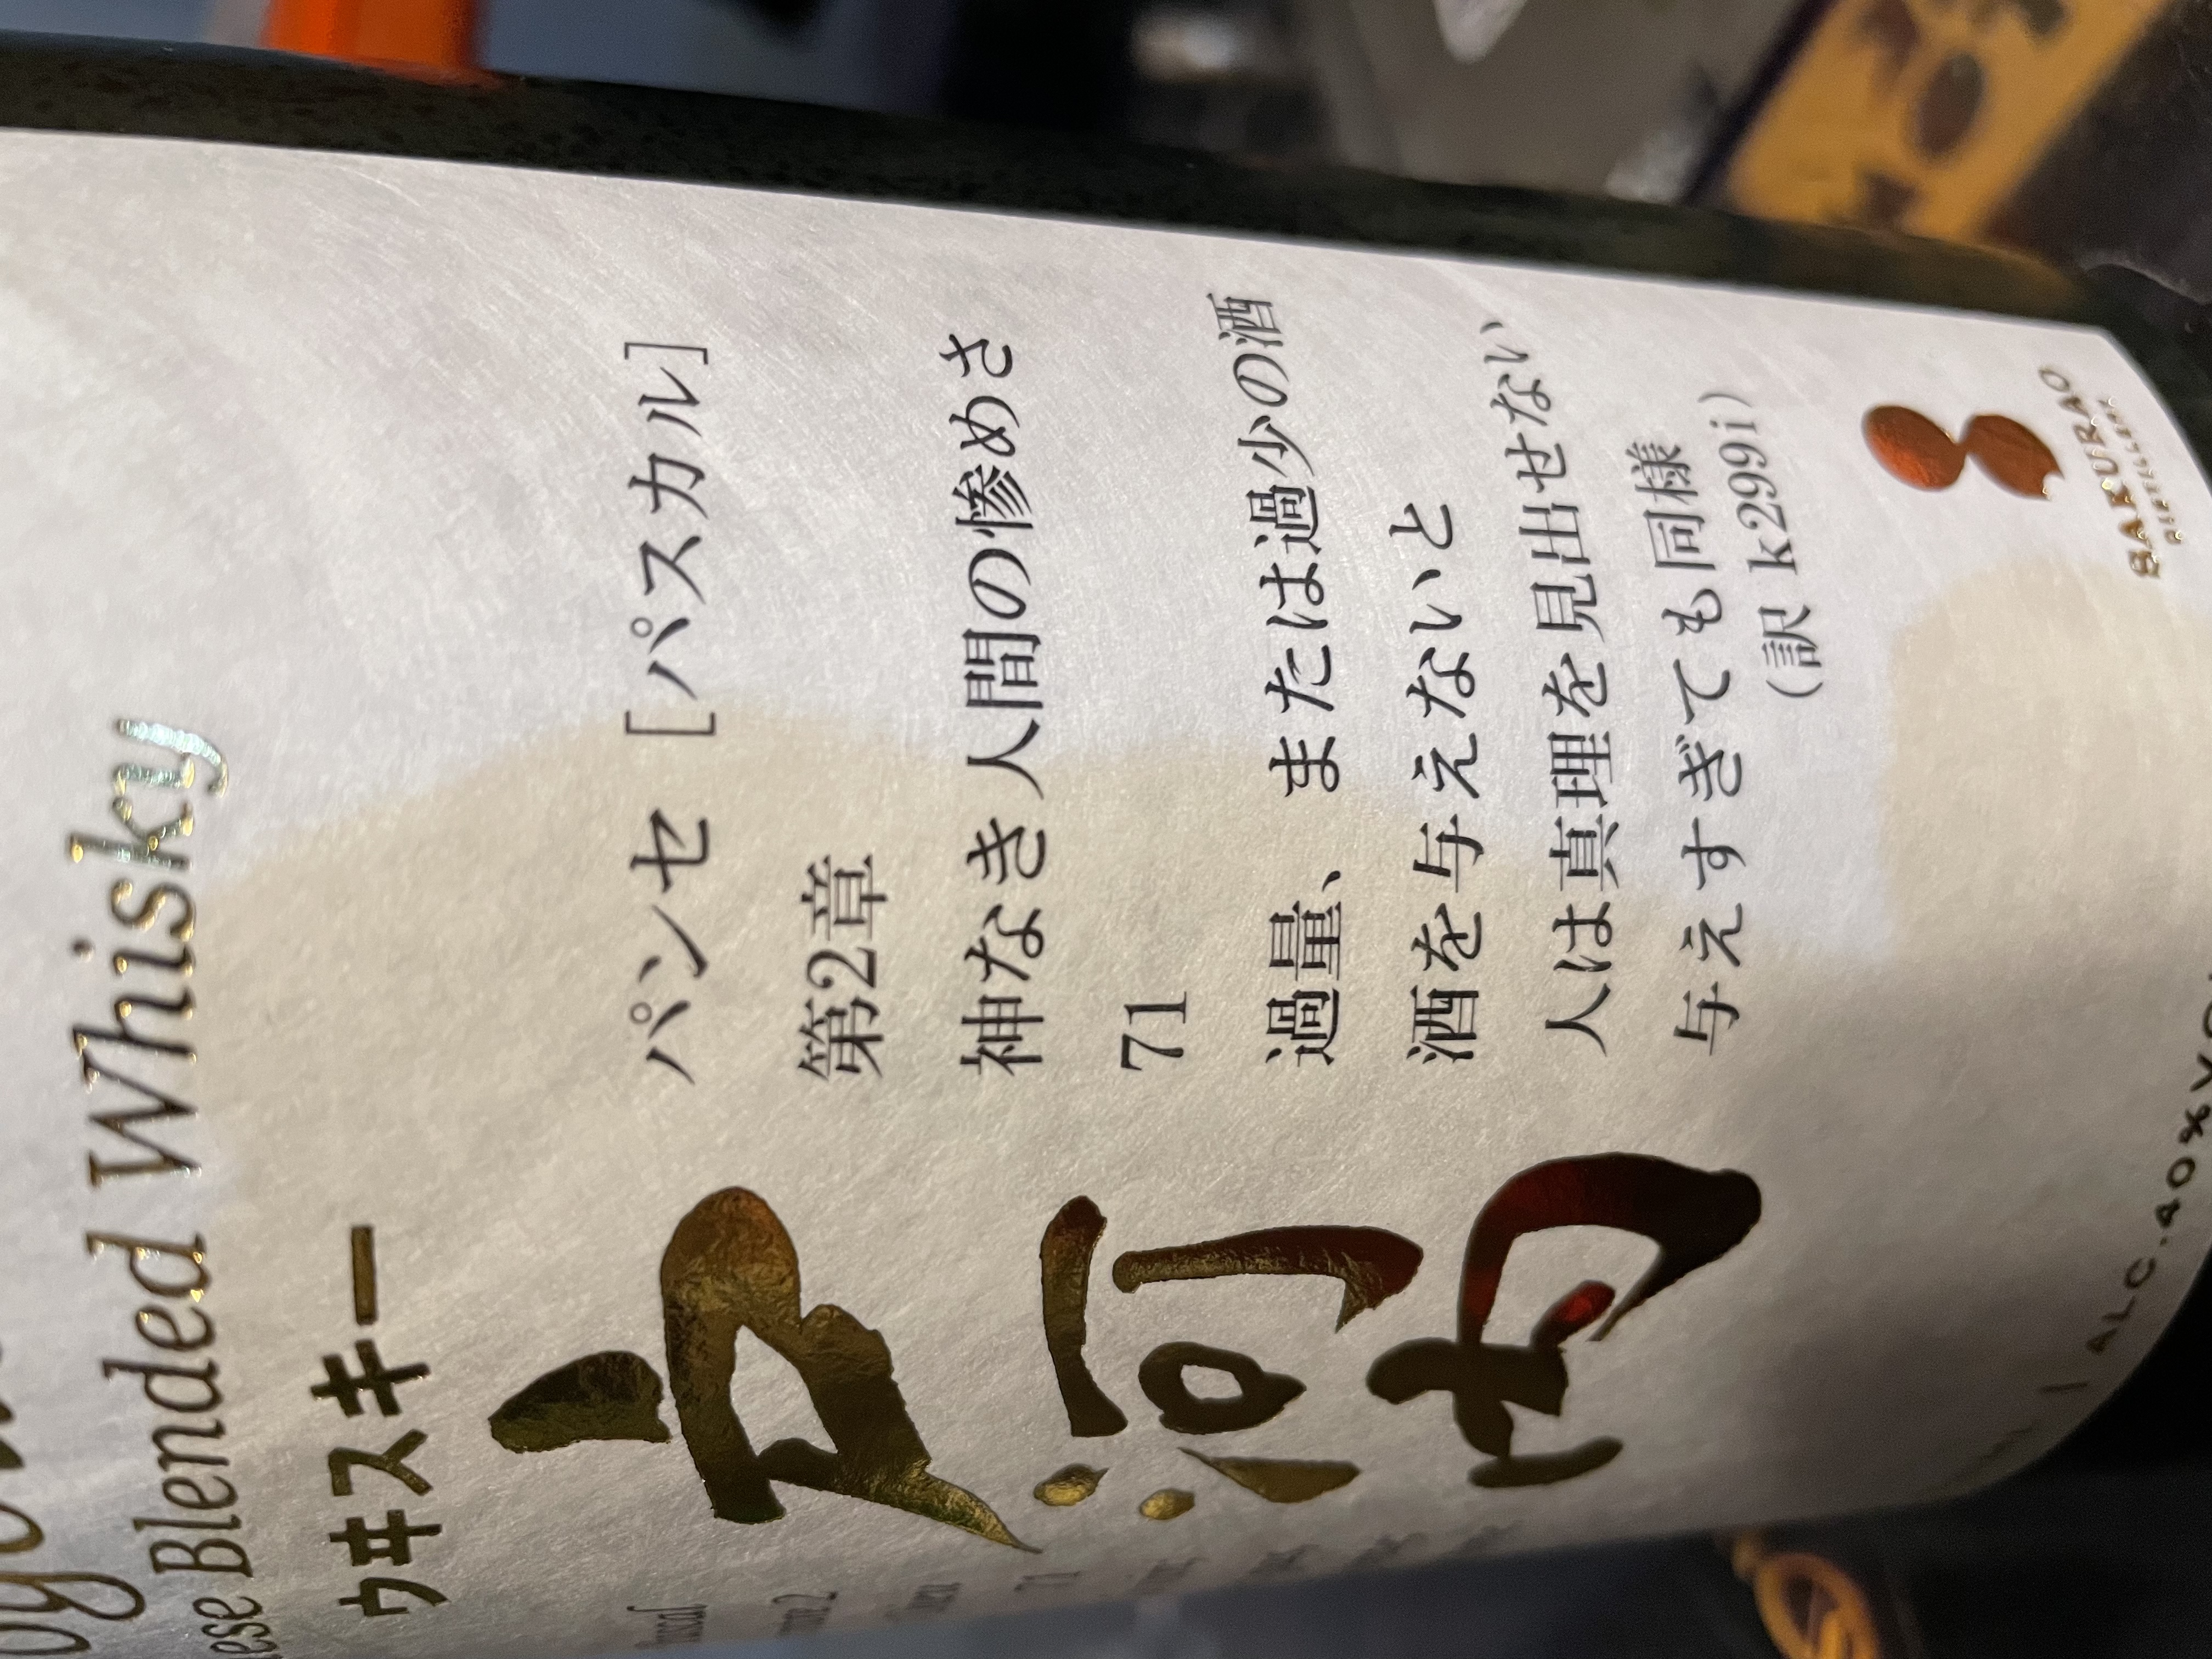 ese Blended Whisky
ウヰスキー
戸河内
パンセ [パスカル]
第2章
神なき人間の惨めさ
71
過量、または過少の酒
酒を与えないと
人は真理を見出せない
与えすぎても同様
(訳 k299i)
SAKURAO
DISTILLERY
ALC.40%